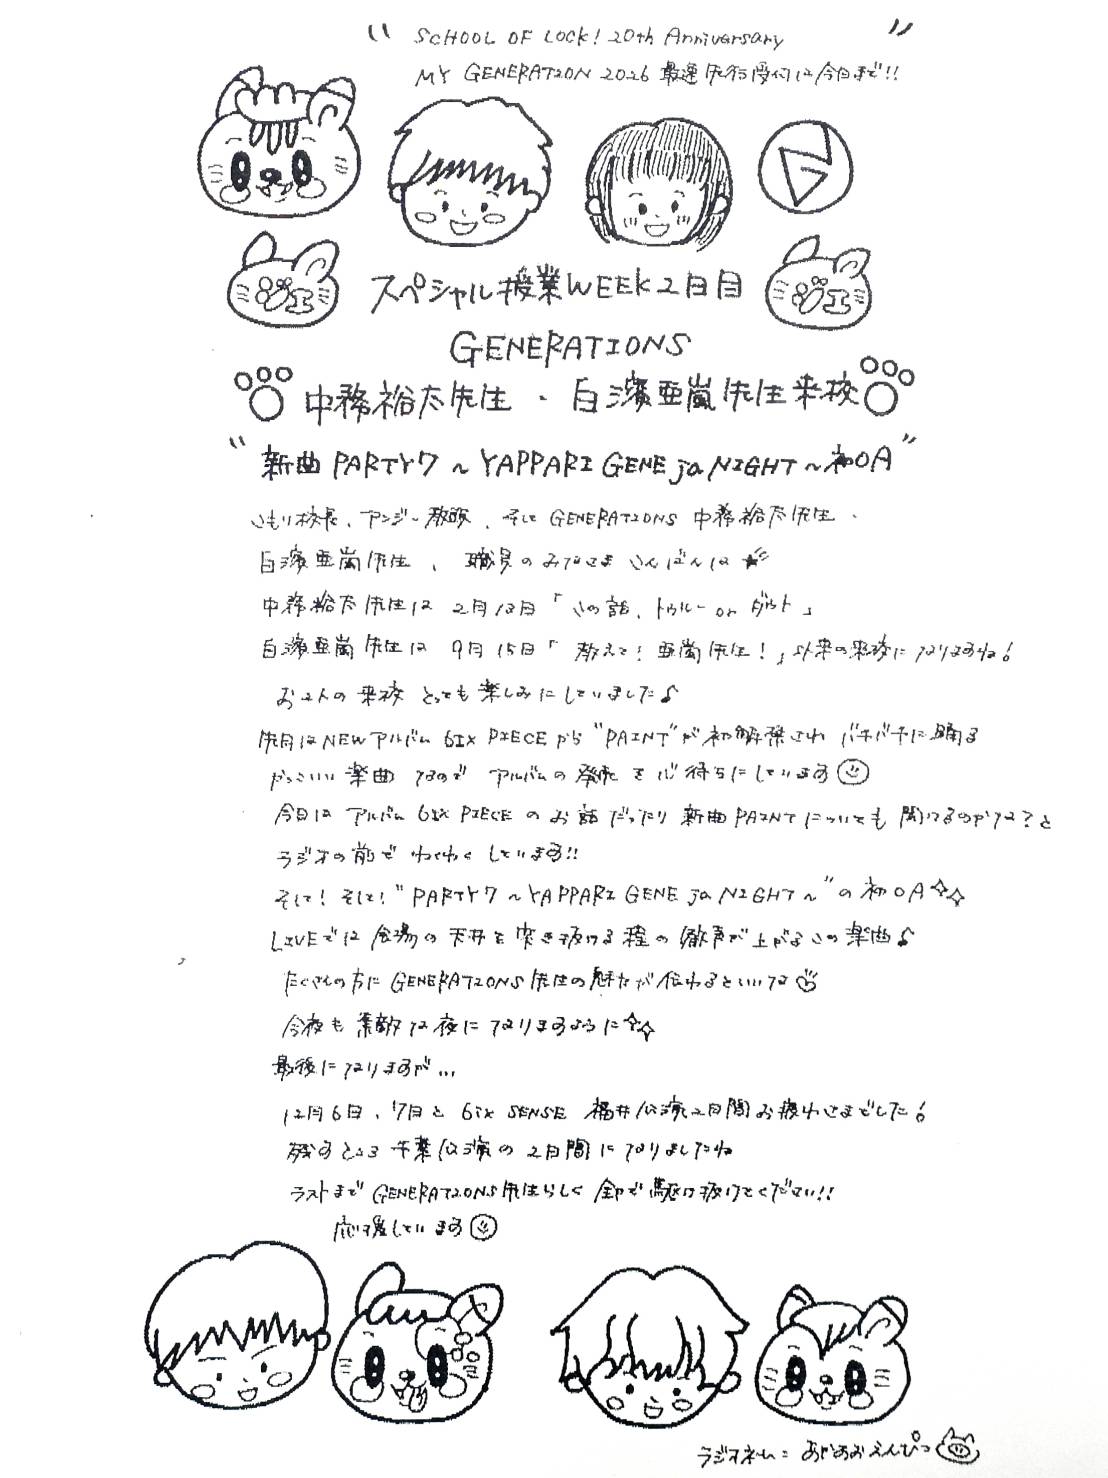 " SCHOOL OF LOCK! 20th Anniversary "
MY GENERATION 2026 最速先行受付は今日まで!!
G
ジェ
ジェ
スペシャル授業WEEK2日目
GENERATIONS
中務裕太先生・白濱亜嵐先生来校
"新曲 PARTY7 ~ YAPPARI GENE ja NIGHT ~ 初OA"
こもり校長、アンジー教頭、そして GENERATIONS 中務裕太先生・
白濱亜嵐先生、職員のみなさま こんばんは★
中務裕太先生は 2月13日「この話、トゥルー or ダウト」
白濱亜嵐先生は 9月15日「教えて!亜嵐先生!」以来の来校になりますね!
お2人の来校 とっても楽しみにしていました♪
先月はNEWアルバム 6IX PIECEから "PAINT"が初解禁され バチバチに踊る
かっこいい楽曲 なので アルバムの発売を心待ちにしています
今日は アルバム 6IX PIECE のお話だったり 新曲PAINTについても 聞けるのかな?と
ラジオの前で わくわく しています!!
そして! そして! "PARTY7 ~ YAPPARI GENE ja NIGHT ~" の初OA
LIVEでは会場の天井を突き抜ける程の歓声が上がるこの楽曲♪
たくさんの方に GENERATIONS先生の魅力が伝わるといいな
今夜も素敵な夜になりますように
最後になりますが...
12月6日、7日と 6IX SENSE 福井公演2日間お疲れさまでした!
残すところ千葉公演の2日間になりましたね
ラストまで GENERATIONS先生らしく 全力で駆け抜けてください!!
応援しています
ラジオネーム = あかあおえんぴつ